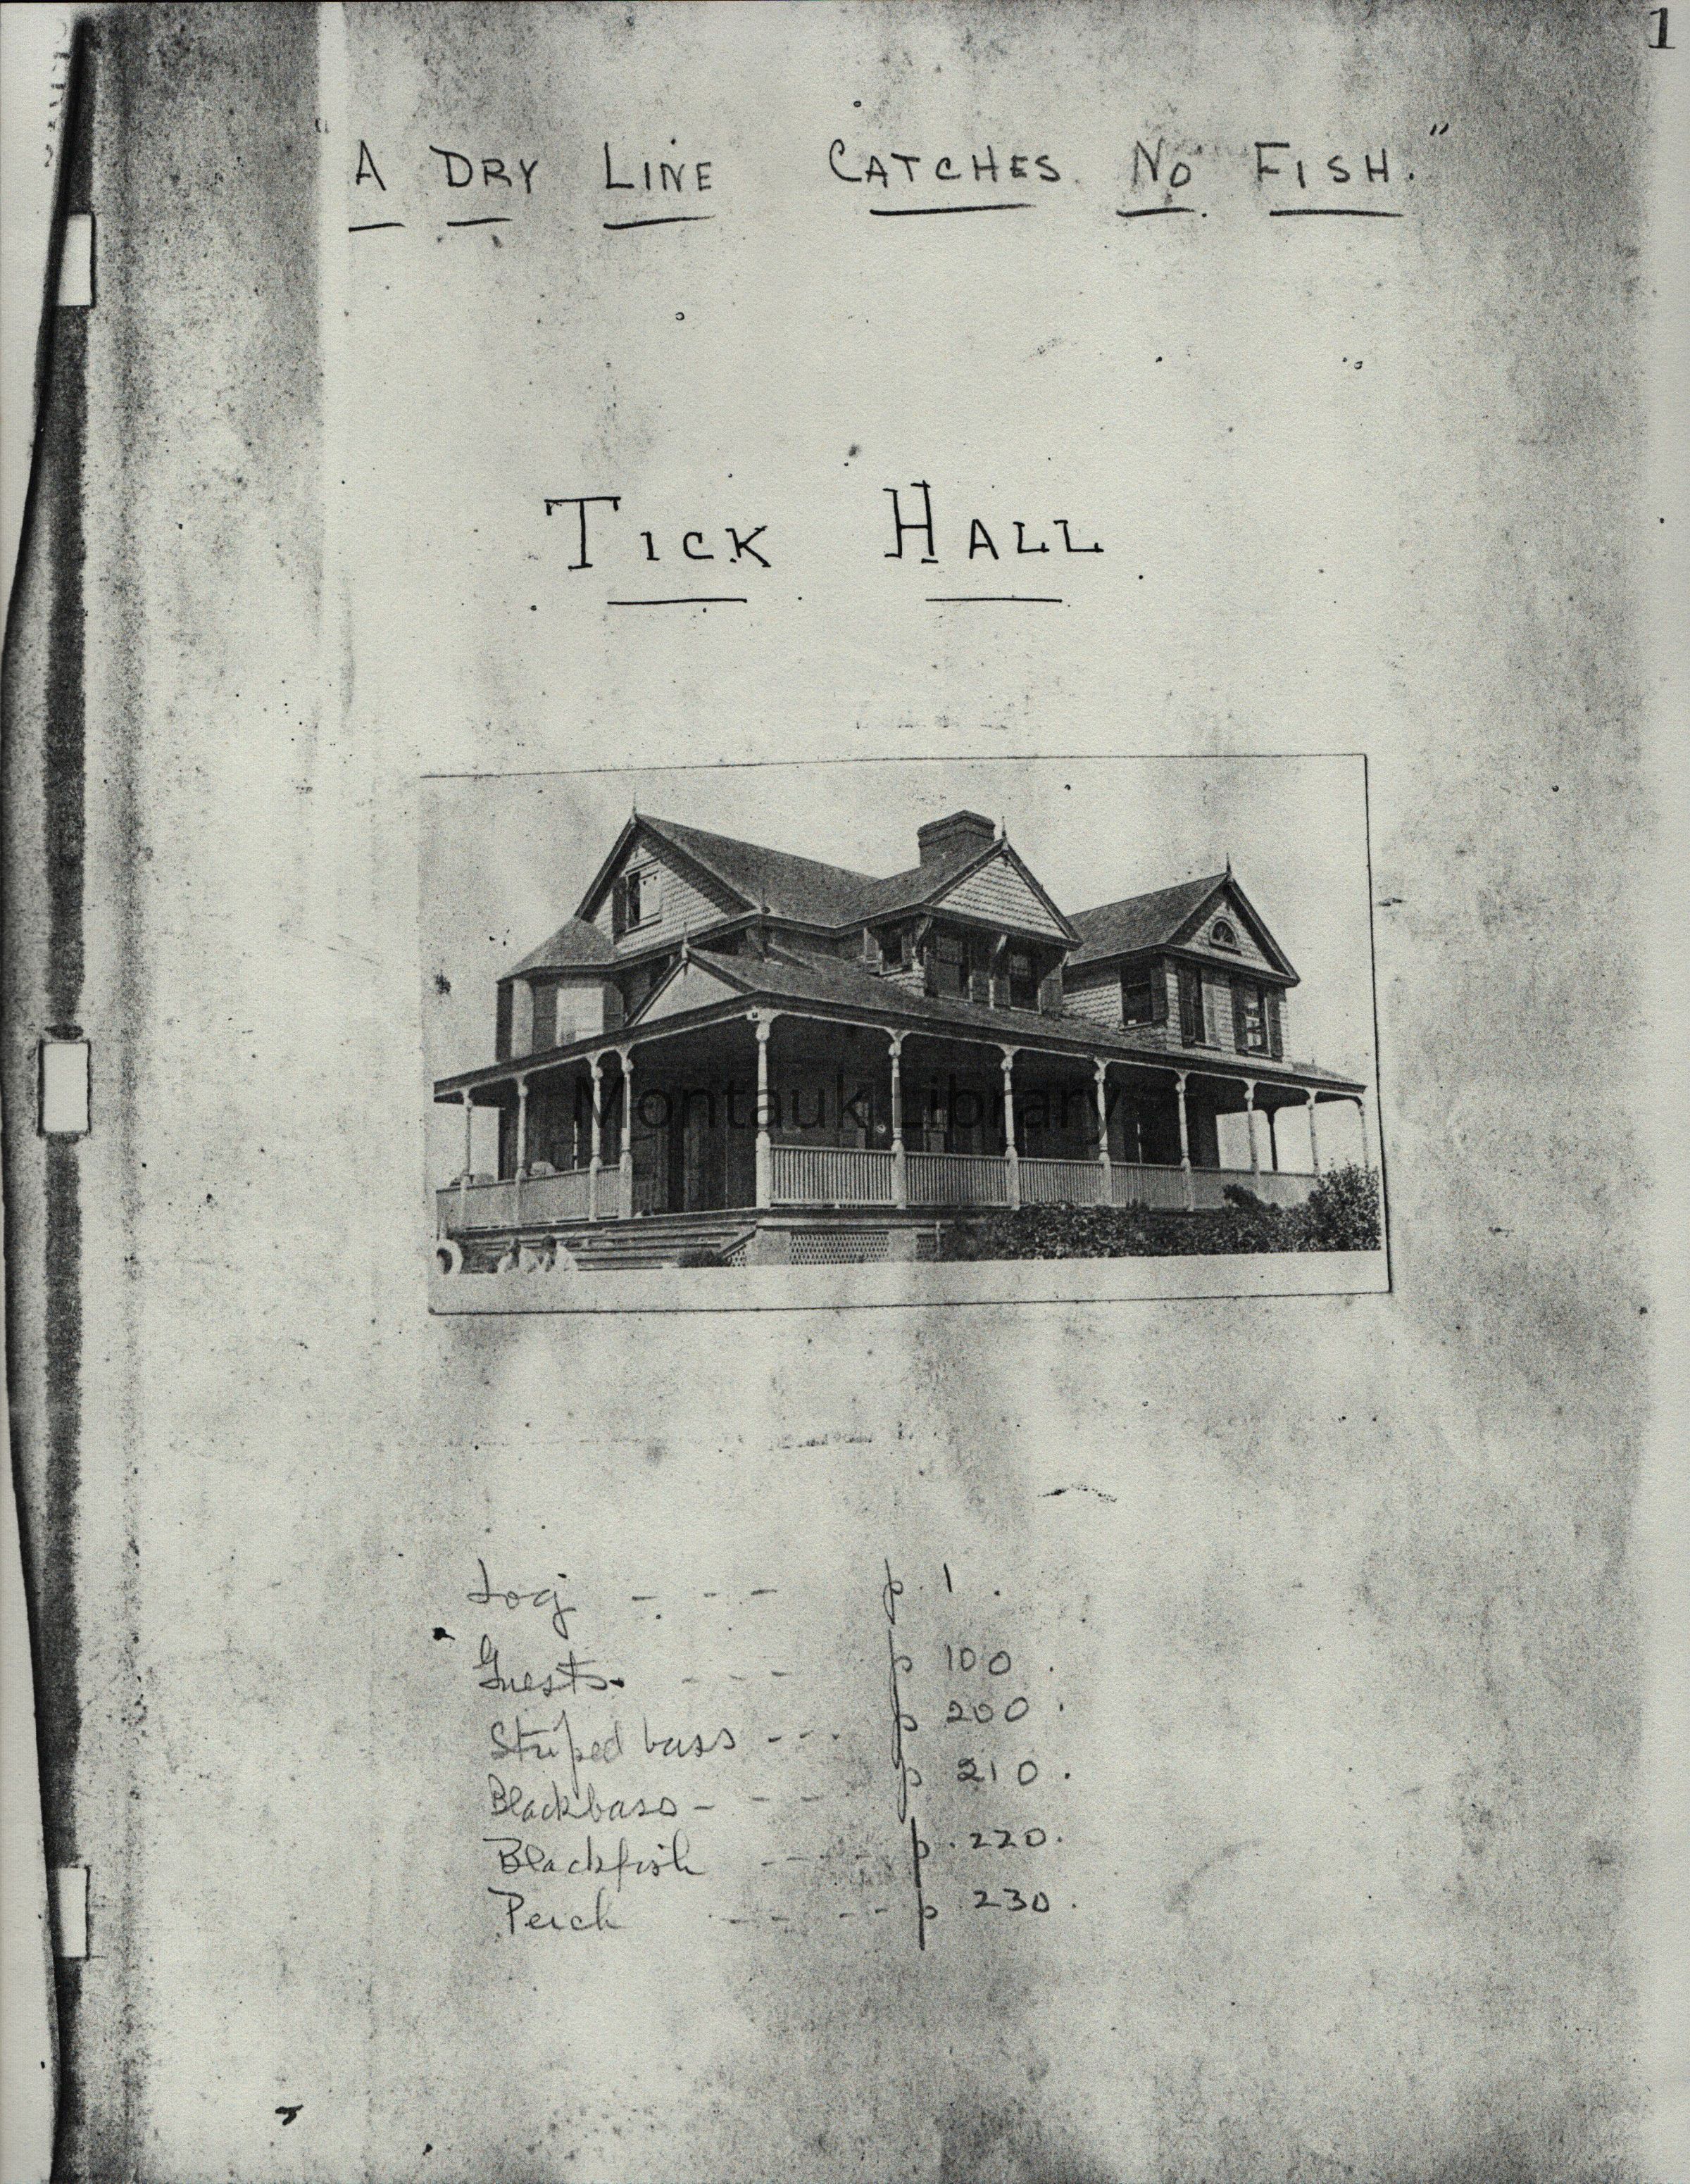 1
A DRY LINE CATCHES NO FISH."
TICK HALL
Montauk Library
Log - - - - p. 1.
Guests. - - - p 100.
Striped bass - - - p 200.
Blackbass - - - p 210.
Blackfish - - - - p. 220.
Perch - - - - - p 230.